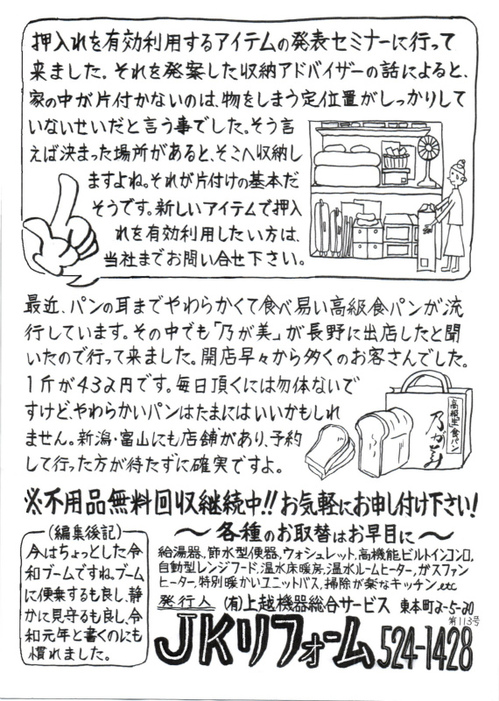 押入れを有効利用するアイテムの発表セミナーに行って
来ました。それを発案した収納アドバイザーの話によると、
家の中が片付かないのは、物をしまう定位置がしっかりして
いないせいだと言う事でした。そう言
えば決まった場所があると、そこへ収納し
ますよね。それが片付けの基本だ
そうです。新しいアイテムで押入
れを有効利用したい方は、
当社までお問い合せ下さい。
最近、パンの耳までやわらかくて食べ易い高級食パンが流
行しています。その中でも「乃が美」が長野に出店したと聞
いたので行って来ました。開店早々から多くのお客さんでした。
1斤が432円です。毎日頂くには勿体ないで
すけどやわらかいパンはたまにはいいかもしれ
ません。新潟・富山にも店舗があり、予約
して行った方が待たずに確実ですよ。
高級生食パン
乃が美
※不用品無料回収継続中!!お気軽にお申し付け下さい!
(編集後記)
今はちょっとした令
和ブームですね。ブーム
に便乗するも良し、静
かに見守るも良し、令
和元年と書くのにも
慣れました。
〜各種のお取替はお早目に〜
給湯器、節水型便器、ウォシュレット、高機能ビルトインコンロ、
自動型レンジフード、温水床暖房、温水ルームヒーター、ガスファン
ヒーター、特別暖かいユニットバス、掃除が楽なキッチン、etc
発行人 (有)上越機器総合サービス 東本町2-5-20
第113号
JKリフォーム 524-1428